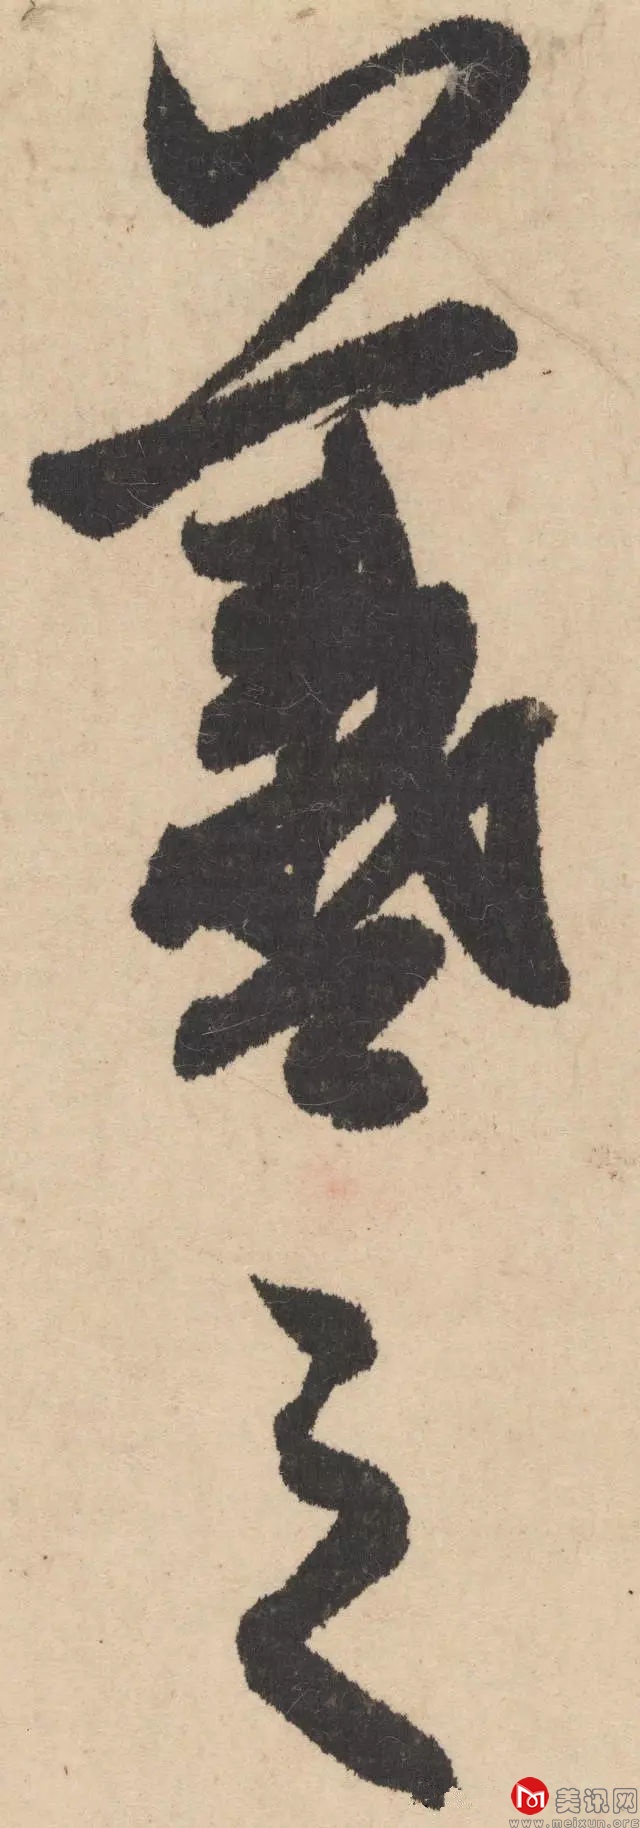 羲之
美讯网
www.meixun.org